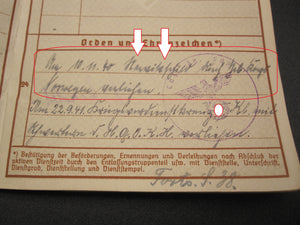 Orden und Ehrenzeichen*)
Am 10.11.40 Narvikschild durch
Norwegen verliehen.
Am 22.9.41 Kriegsverdienstkreuz Kl. mit
Schwertern v. H. Q. O.K.H. verliehen.
*) Bestätigung der Beförderungen, Ernennungen und Verleihungen nach Abschluß der
aktiven Dienstzeit durch den Entlassungstruppenteil usw. mit Dienststelle, Unterschrift,
Dienstgrad, Dienststellung und Dienststempel.